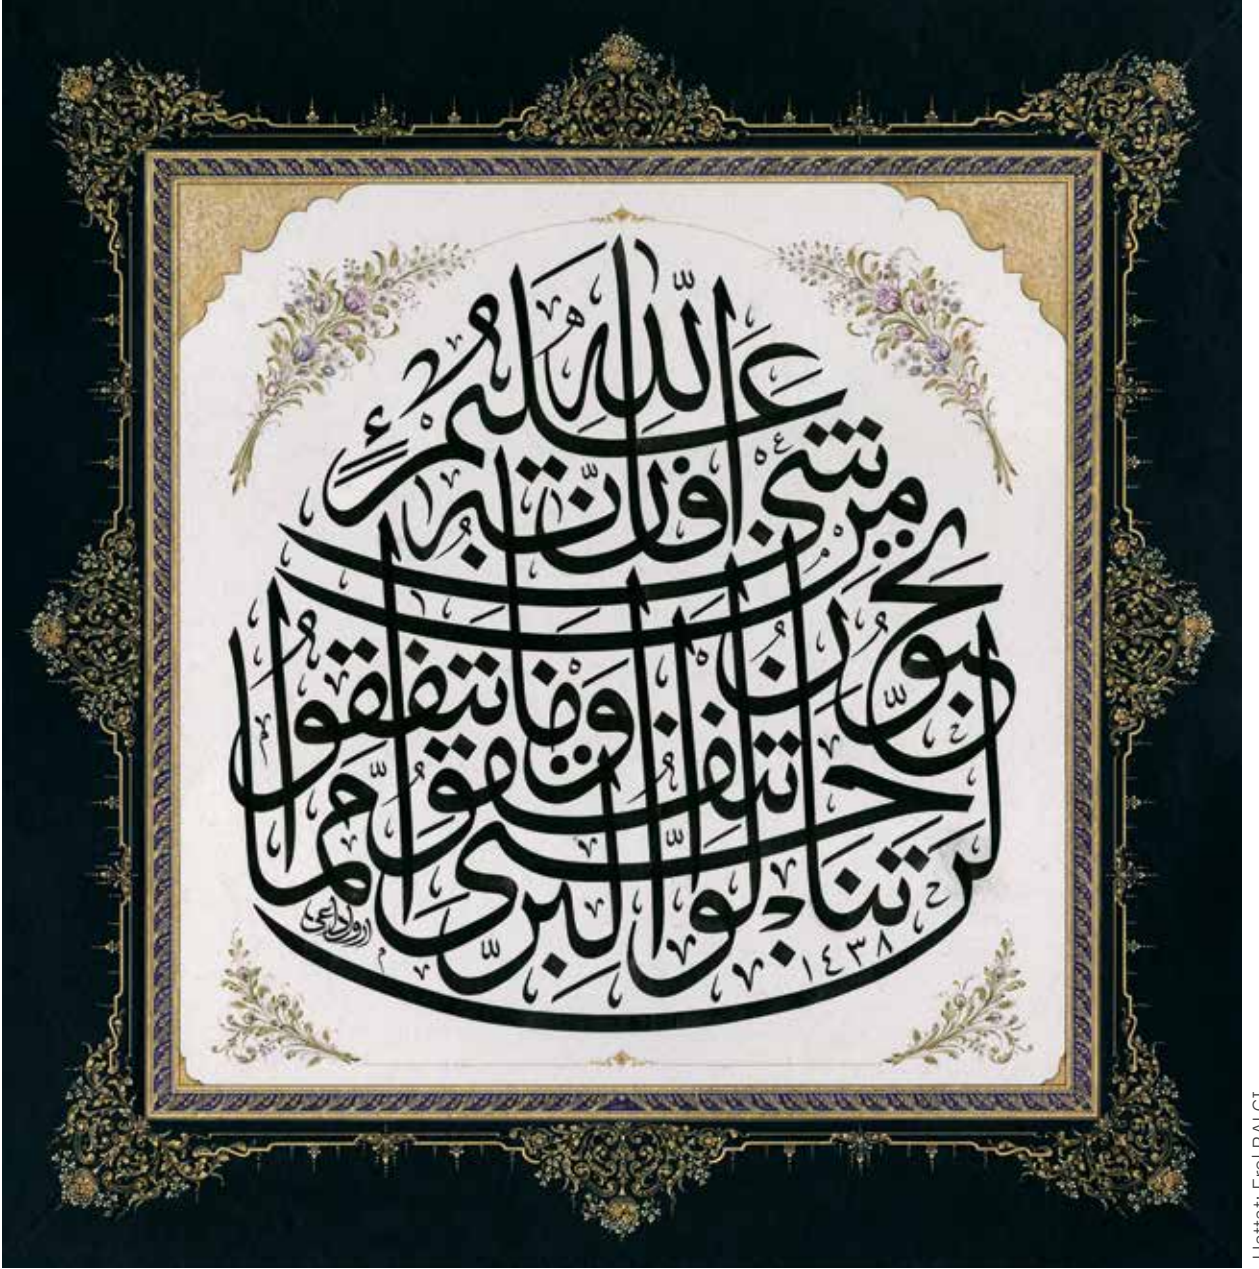 لَنْ تَنَالُوا الْبِرَّ حَتَّى تُنْفِقُوا مِمَّا تُحِبُّونَ وَمَا تُنْفِقُوا مِنْ شَيْءٍ فَاِنَّ اللّٰهَ بِهِ عَلِيمٌ
١٤٣٨
Hattat: Erol BALCI